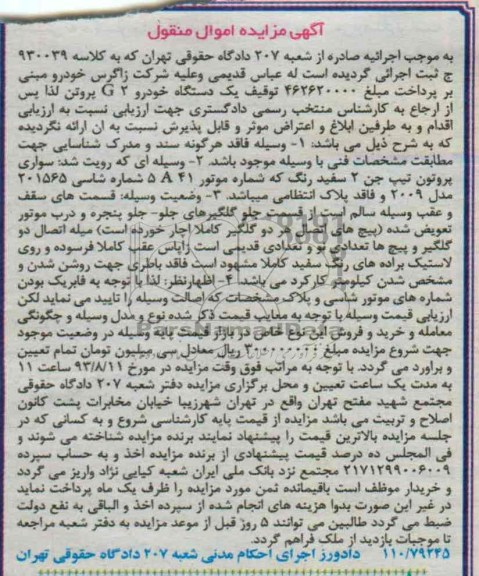 آگهی مزایده اموال منقول
به موجب اجرائیه صادره از شعبه ۲۰۷ دادگاه حقوقی تهران که به کلاسه ۹۳۰۰۳۹
ج ثبت اجرائی گردیده است له عباس قدیمی وعلیه شرکت زاگرس خودرو مبنی
بر پرداخت مبلغ ۴۶۲۶۲۰۰۰۰ توقیف یک دستگاه خودرو G ۲ پروتن لذا پس
از ارجاع به کارشناس منتخب رسمی دادگستری جهت ارزیابی نسبت به ارزیابی
اقدام و به طرفین ابلاغ و اعتراض موثر و قابل پذیرش نسبت به ان ارائه نگردیده
که به شرح ذیل می باشد: ۱- وسیله فاقد هرگونه سند و مدرک شناسایی جهت
مطابقت مشخصات فنی با وسیله موجود باشد. ۲- وسیله ای که رویت شد: سواری
پروتون تیپ جن ۲ سفید رنگ که شماره موتور ۴۱ A ۵ شماره شاسی ۲۰۱۵۶۵
مدل ۲۰۰۹ و فاقد پلاک انتظامی میباشد. ۳- وضعیت وسیله: قسمت های سقف
و عقب وسیله سالم است از قسمت جلو گلگیرهای جلو- جلو پنجره و درب موتور
تعویض شده (پیچ های اتصال هر دو گلگیر کاملا اچار خورده است) میله اتصال دو
گلگیر و پیچ ها تعدادی نو و تعدادی قدیمی است زاپاس عقب کاملا فرسوده و روی
لاستیک براده های رنگ سفید کاملا مشهود است فاقد باطری جهت روشن شدن و
مشخص شدن کیلومتر کارکرد می باشد. ۴- اظهارنظر: لذا با توجه به فابریک بودن
شماره های موتور شاسی و پلاک مشخصات که اصالت وسیله را تایید می نماید لکن
ارزیابی قیمت وسیله با توجه به معایب قیمت ذکر شده نوع و مدل وسیله و چگونگی
معامله و خرید و فروش این نوع خاص در بازار قیمت پایه وسیله در وضعیت موجود
جهت شروع مزایده مبلغ ۳۰۰۰۰۰۰۰۰ ریال معادل سی میلیون تومان تمام تعیین
و براورد می گردد. با توجه به مراتب فوق وقت مزایده در مورخ ۹۳/۸/۱۱ ساعت ۱۱
به مدت یک ساعت تعیین و محل برگزاری مزایده دفتر شعبه ۲۰۷ دادگاه حقوقی
مجتمع شهید مفتح تهران واقع در تهران شهرزیبا خیابان مخابرات پشت کانون
اصلاح و تربیت می باشد مزایده از قیمت پایه کارشناسی شروع و به کسانی که در
جلسه مزایده بالاترین قیمت را پیشنهاد نمایند برنده مزایده شناخته می شوند و
فی المجلس ده درصد قیمت پیشنهادی از برنده مزایده اخذ و به حساب سپرده
۲۱۷۱۲۹۹۰۰۶۰۰۹ مجتمع نزد بانک ملی ایران شعبه کیایی نژاد واریز می گردد
و خریدار موظف است باقیمانده ثمن مورد مزایده را ظرف یک ماه پرداخت نماید
در غیر این صورت بدوا هزینه های انجام شده از سپرده اخذ و الباقی به نفع دولت
ضبط می گردد طالبین می توانند ۵ روز قبل از موعد مزایده به دفتر شعبه مراجعه
تا موجبات بازدید از ملک فراهم گردد.
۱۱۰/۷۹۲۴۵ دادورز اجرای احکام مدنی شعبه ۲۰۷ دادگاه حقوقی تهران